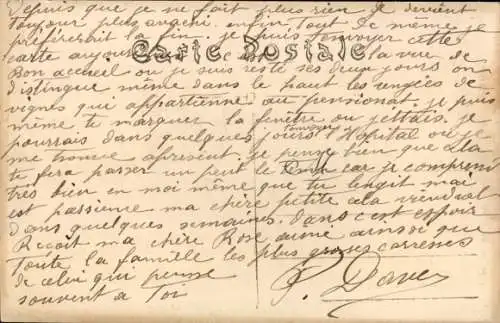 Depuis que je ne fait plus rien je devient
toujour plus enfin tout de même je
préférerait la fin. je puis envoyer cette
carte aujour la vue de
Carte Postale
Bon accueil ou je suis resté ses deux jours on
distingue même dans le haut les rengées de
vignes qui appartienne au pensionat. je puis
même te marquer la fenêtre ou jettais. je
pourrais dans quelques jours t'envoyer l'Hopital ou je
me trouve apresent. je pense bien que cela
te fera passer un peut le temp car je comprend
très bien en moi même que tu lengit mai
est passience ma chère petite cela viendrat
dans quelques semaines. dans c'est espoir
Reçoit ma chère Rose aimé ainsi que
toute la famille les plus grosses carresses
de celui qui pense
souvent a Toi
P. Dave